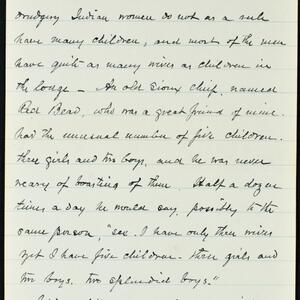 drudgery Indian women do not as a rule
have many children, and most of the men
have quite as many wives as children in
the lodge – An old Sioux chief, named
Red Bead, who was a great friend of mine.
has the unusual number of five children.
three girls and two boys, and he was never
weary of boasting of them. Half a dozen
times a day he would say, possibly to the
same person, "see. I have only three wives
yet I have five children. three girls and
two boys, two splendid boys."